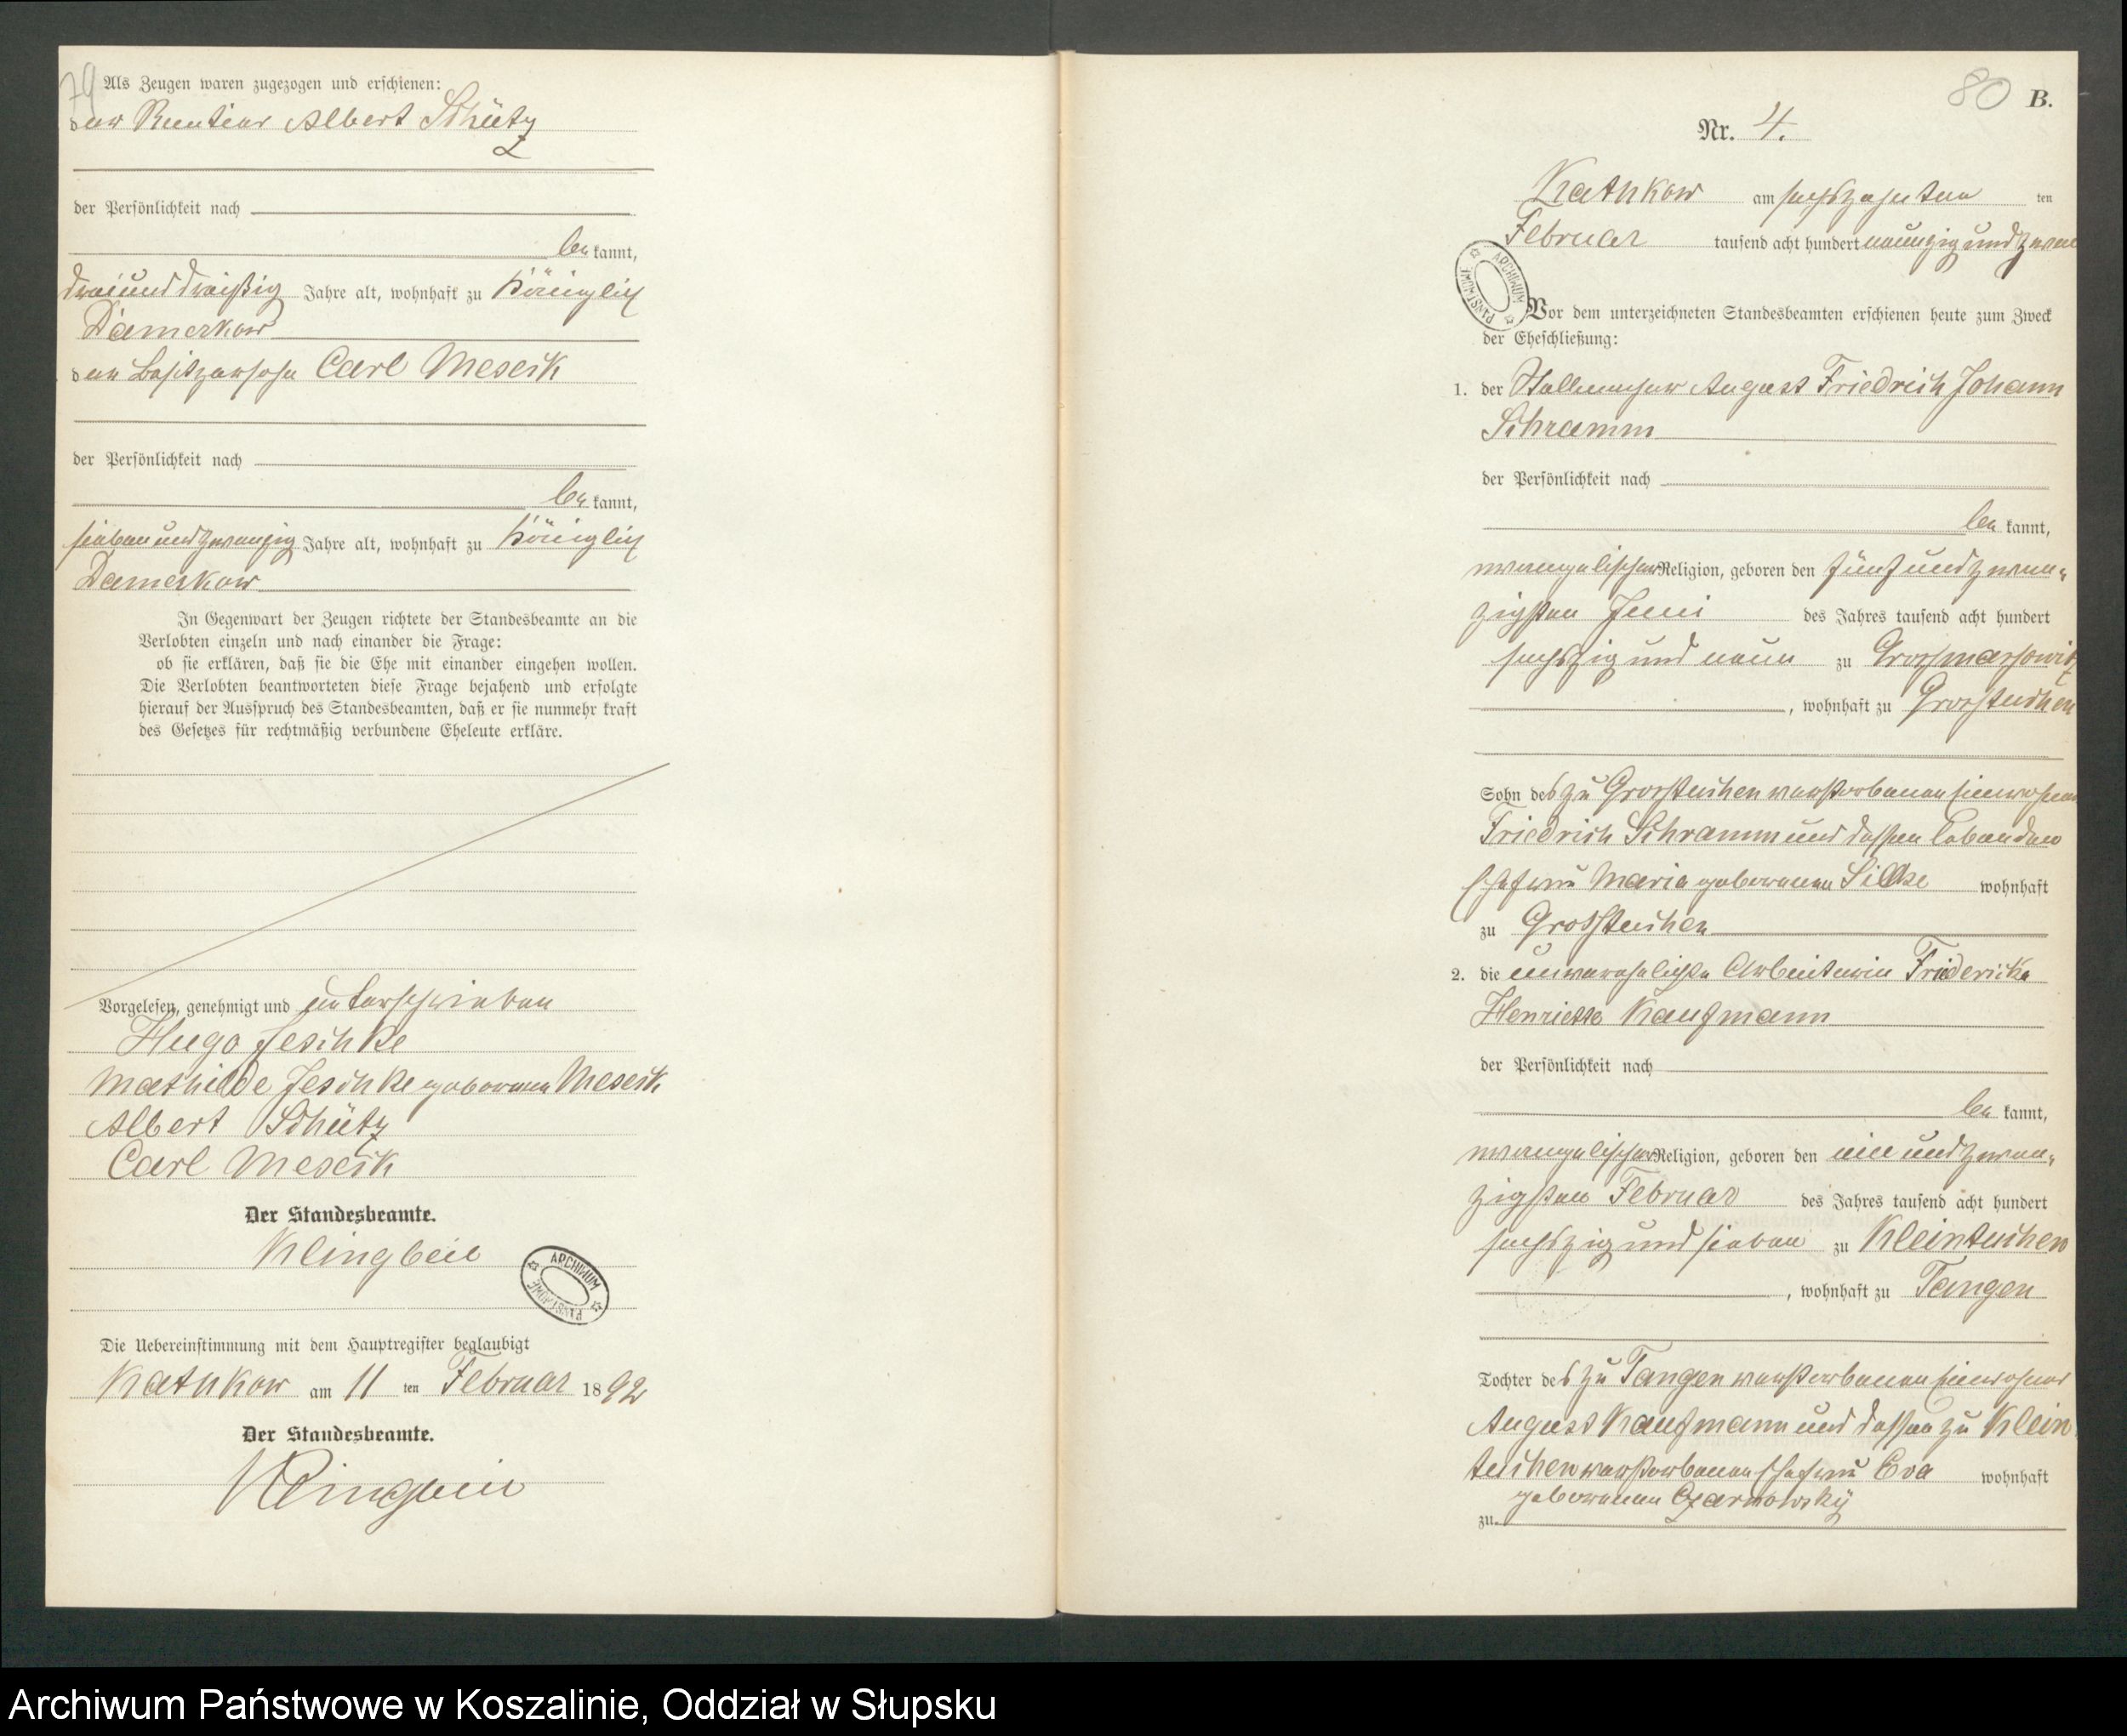 79
Als Zeugen waren zugezogen und erschienen:
der Rentier Albert Schütz
der Persönlichkeit nach
be kannt,
dreiunddreißig Jahre alt, wohnhaft zu Königlich
Damerkow
der Besitzersohn Carl Meseck
der Persönlichkeit nach
be kannt,
siebenundzwanzig Jahre alt, wohnhaft zu Königlich
Damerkow
In Gegenwart der Zeugen richtete der Standesbeamte an die
Verlobten einzeln und nach einander die Frage:
ob sie erklären, daß sie die Ehe mit einander eingehen wollen.
Die Verlobten beantworteten diese Frage bejahend und erfolgte
hierauf der Ausspruch des Standesbeamten, daß er sie nunmehr kraft
des Gesetzes für rechtmäßig verbundene Eheleute erkläre.
Vorgelesen, genehmigt und unterschrieben
Hugo Jeschke
Mathilde Jeschke geborene Meseck
Albert Schütz
Carl Meseck
Der Standesbeamte.
Klingbeil
ARCHIWUM PAŃSTWOWE
Die Uebereinstimmung mit dem Hauptregister beglaubigt
Kathkow am 11 ten Februar 1892
Der Standesbeamte.
Klingbeil
80 B.
Nr. 4.
Kathkow am sechszehnten ten
Februar tausend acht hundert neunzig und zwei
ARCHIWUM PAŃSTWOWE
Vor dem unterzeichneten Standesbeamten erschienen heute zum Zweck
der Eheschließung:
1. der August Friedrich Johann
Schramm
der Persönlichkeit nach
be kannt,
evangelischer Religion, geboren den fünf und zwan-
zigsten Juni des Jahres tausend acht hundert
sechszig und neun zu Grossmassowitz
, wohnhaft zu Grosstuchen
Sohn des zu Grosstuchen verstorbenen Einwohner
Friedrich Schramm und dessen lebenden
Ehefrau Maria geborenen Silke wohnhaft
zu Grosstuchen
2. die unverehelichte Arbeiterin Friedericke
Henriette Kaufmann
der Persönlichkeit nach
be kannt,
evangelischer Religion, geboren den ein und zwan-
zigsten Februar des Jahres tausend acht hundert
sechszig und sieben zu Kleintuchen
, wohnhaft zu Tangen
Tochter des zu Tangen verstorbenen Einwohner
August Kaufmann und dessen zu Klein
tuchen verstorbenen Ehefrau Eva wohnhaft
geborenen Czarnowsky
zu
Archiwum Państwowe w Koszalinie, Oddział w Słupsku